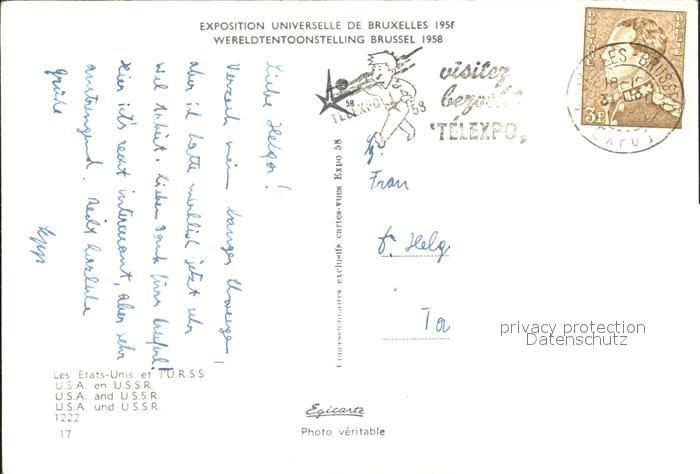 EXPOSITION UNIVERSELLE DE BRUXELLES 1958
WERELDTENTOONSTELLING BRUSSEL 1958
visitez
bezoekt
"TÉLEXPO"
58 58
TÉLEXPO
BELGIQUE BELGIE
3F
Liebe Helga!
Verzeih mein langes Schweigen!
aber ich hatte wirklich jetzt sehr
viel Arbeit. Lieben Dank fürs
Hier ist's recht interessant, aber sehr
anstrengend. Recht herzliche
Grüße
Concessionnaires exclusifs cartes-vues Expo 58
Fg.
Frau
Helg
privacy protection
Datenschutz
Les Etats-Unis et l'U.R.S.S
U.S.A. en U.S.S.R.
U.S.A. and U.S.S.R.
U.S.A. und U.S.S.R.
1222
17
Egicarte
Photo véritable